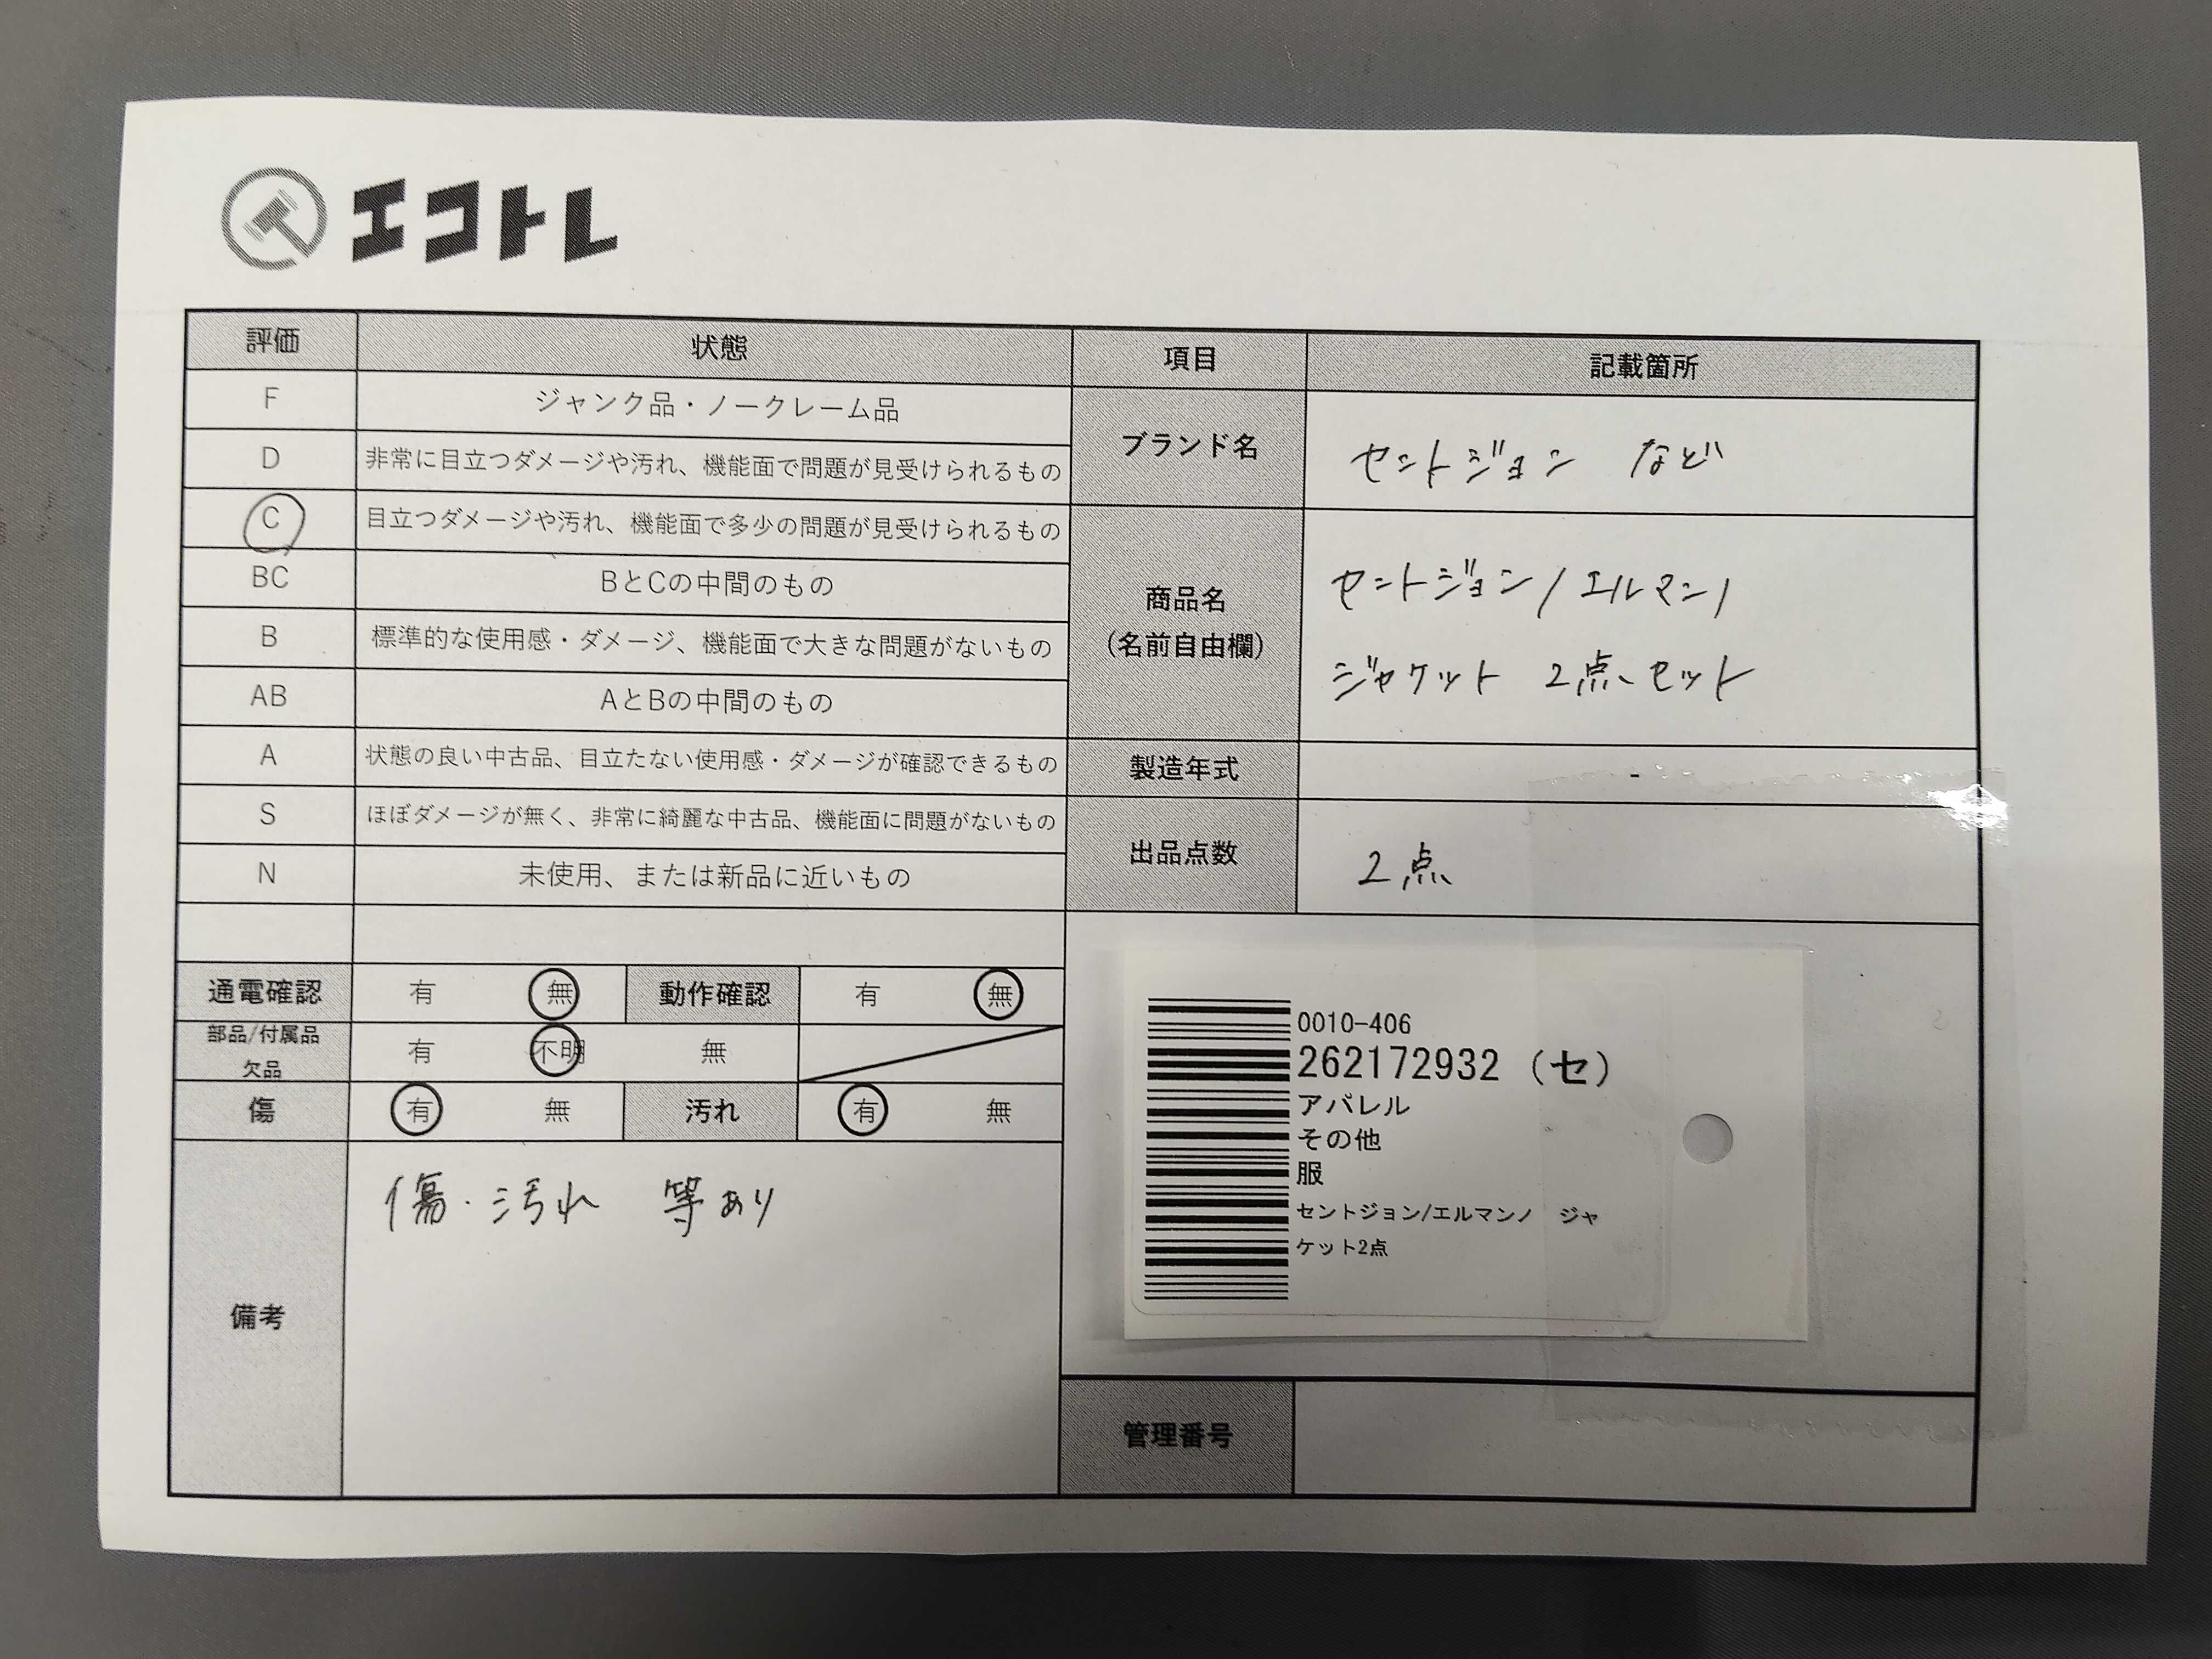 エコトレ
評価 状態 項目 記載箇所
F ジャンク品・ノークレーム品
D 非常に目立つダメージや汚れ、機能面で問題が見受けられるもの
C 目立つダメージや汚れ、機能面で多少の問題が見受けられるもの
BC BとCの中間のもの
B 標準的な使用感・ダメージ、機能面で大きな問題がないもの
AB AとBの中間のもの
A 状態の良い中古品、目立たない使用感・ダメージが確認できるもの
S ほぼダメージが無く、非常に綺麗な中古品、機能面に問題がないもの
N 未使用、または新品に近いもの
通電確認 有 無 動作確認 有 無
部品/付属品
欠品 有 不明 無
傷 有 無 汚れ 有 無
備考 傷・汚れ 等あり
ブランド名 セントジョン など
商品名
(名前自由欄)
セントジョン/エルマンノ
ジャケット 2点セット
製造年式 -
出品点数 2点
0010-406
262172932 (セ)
アパレル
その他
服
セントジョン/エルマンノ ジャ
ケット2点
管理番号